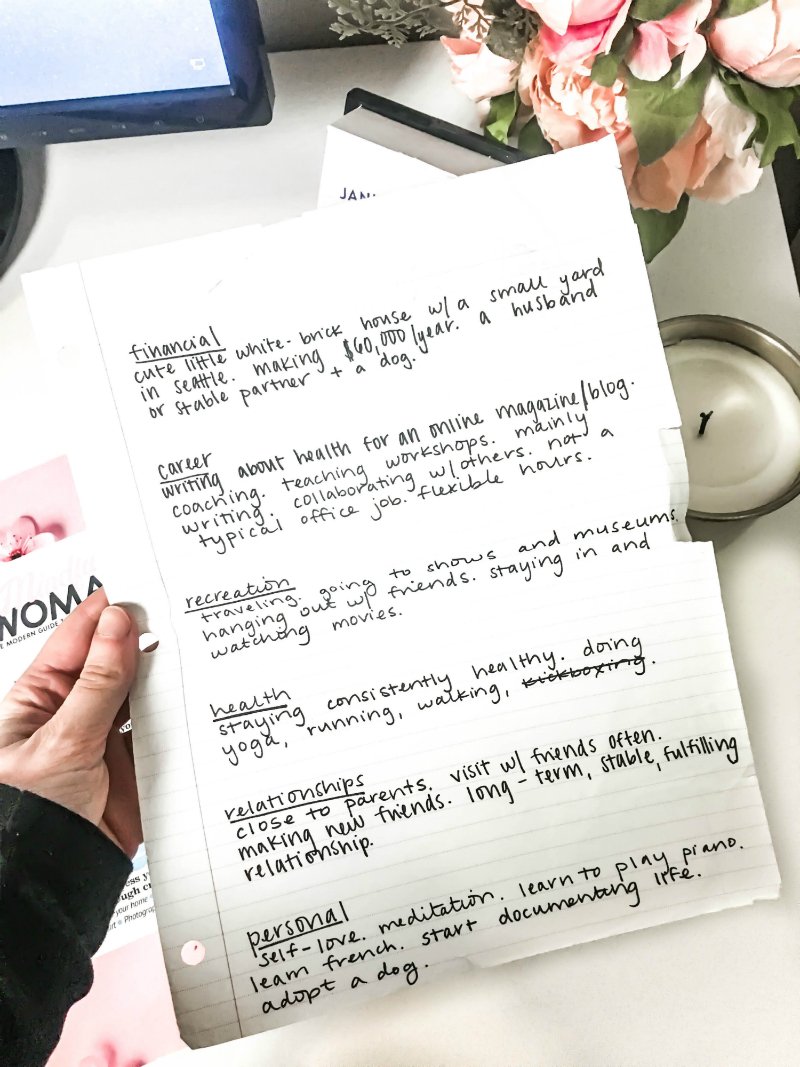 JAN
financial
cute little white-brick house w/ a small yard
in seattle. making $60,000/year. a husband
or stable partner + a dog.
career
writing about health for an online magazine/blog.
coaching. teaching workshops. mainly
writing. collaborating w/others. not a
typical office job. flexible hours.
recreation
traveling. going to shows and museums.
hanging out w/ friends. staying in and
watching movies.
health
staying consistently healthy. doing
yoga, running, walking, kickboxing.
relationships
close to parents. visit w/ friends often.
making new friends. long-term, stable, fulfilling
relationship.
personal
self-love. meditation. learn to play piano.
learn french. start documenting life.
adopt a dog.
WOMA
MODERN GUIDE
your home
Photograp